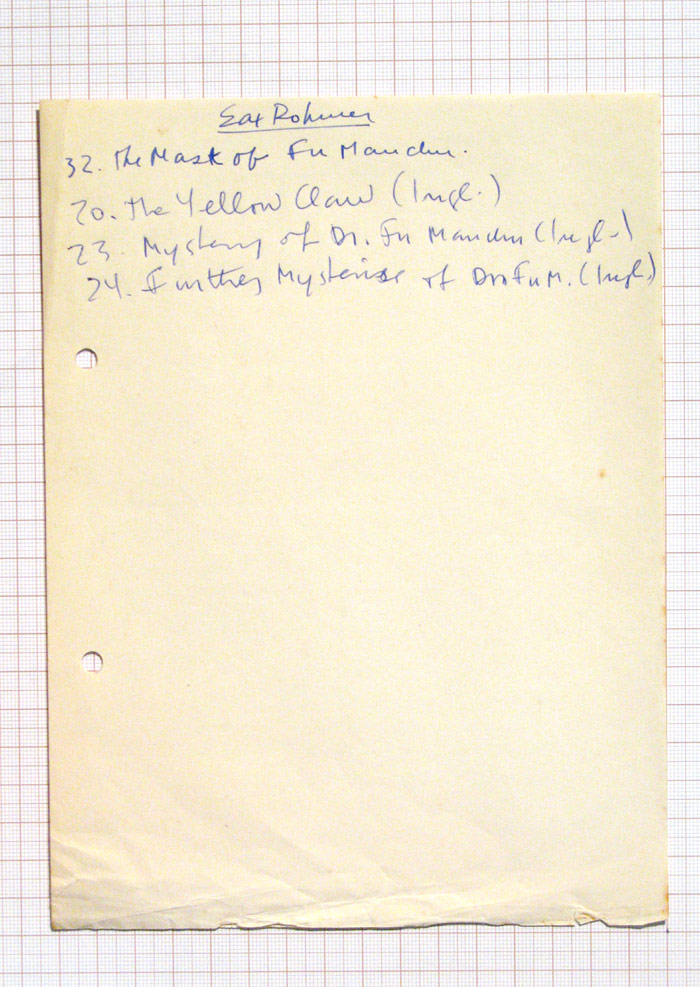 Sax Rohmer
32. The Mask of Fu Manchu.
20. The Yellow Claw (Ingl.)
23. Mystery of Dr. Fu Manchu (Ingl.)
24. Further Mysteries of Dr. Fu M. (Ingl.)